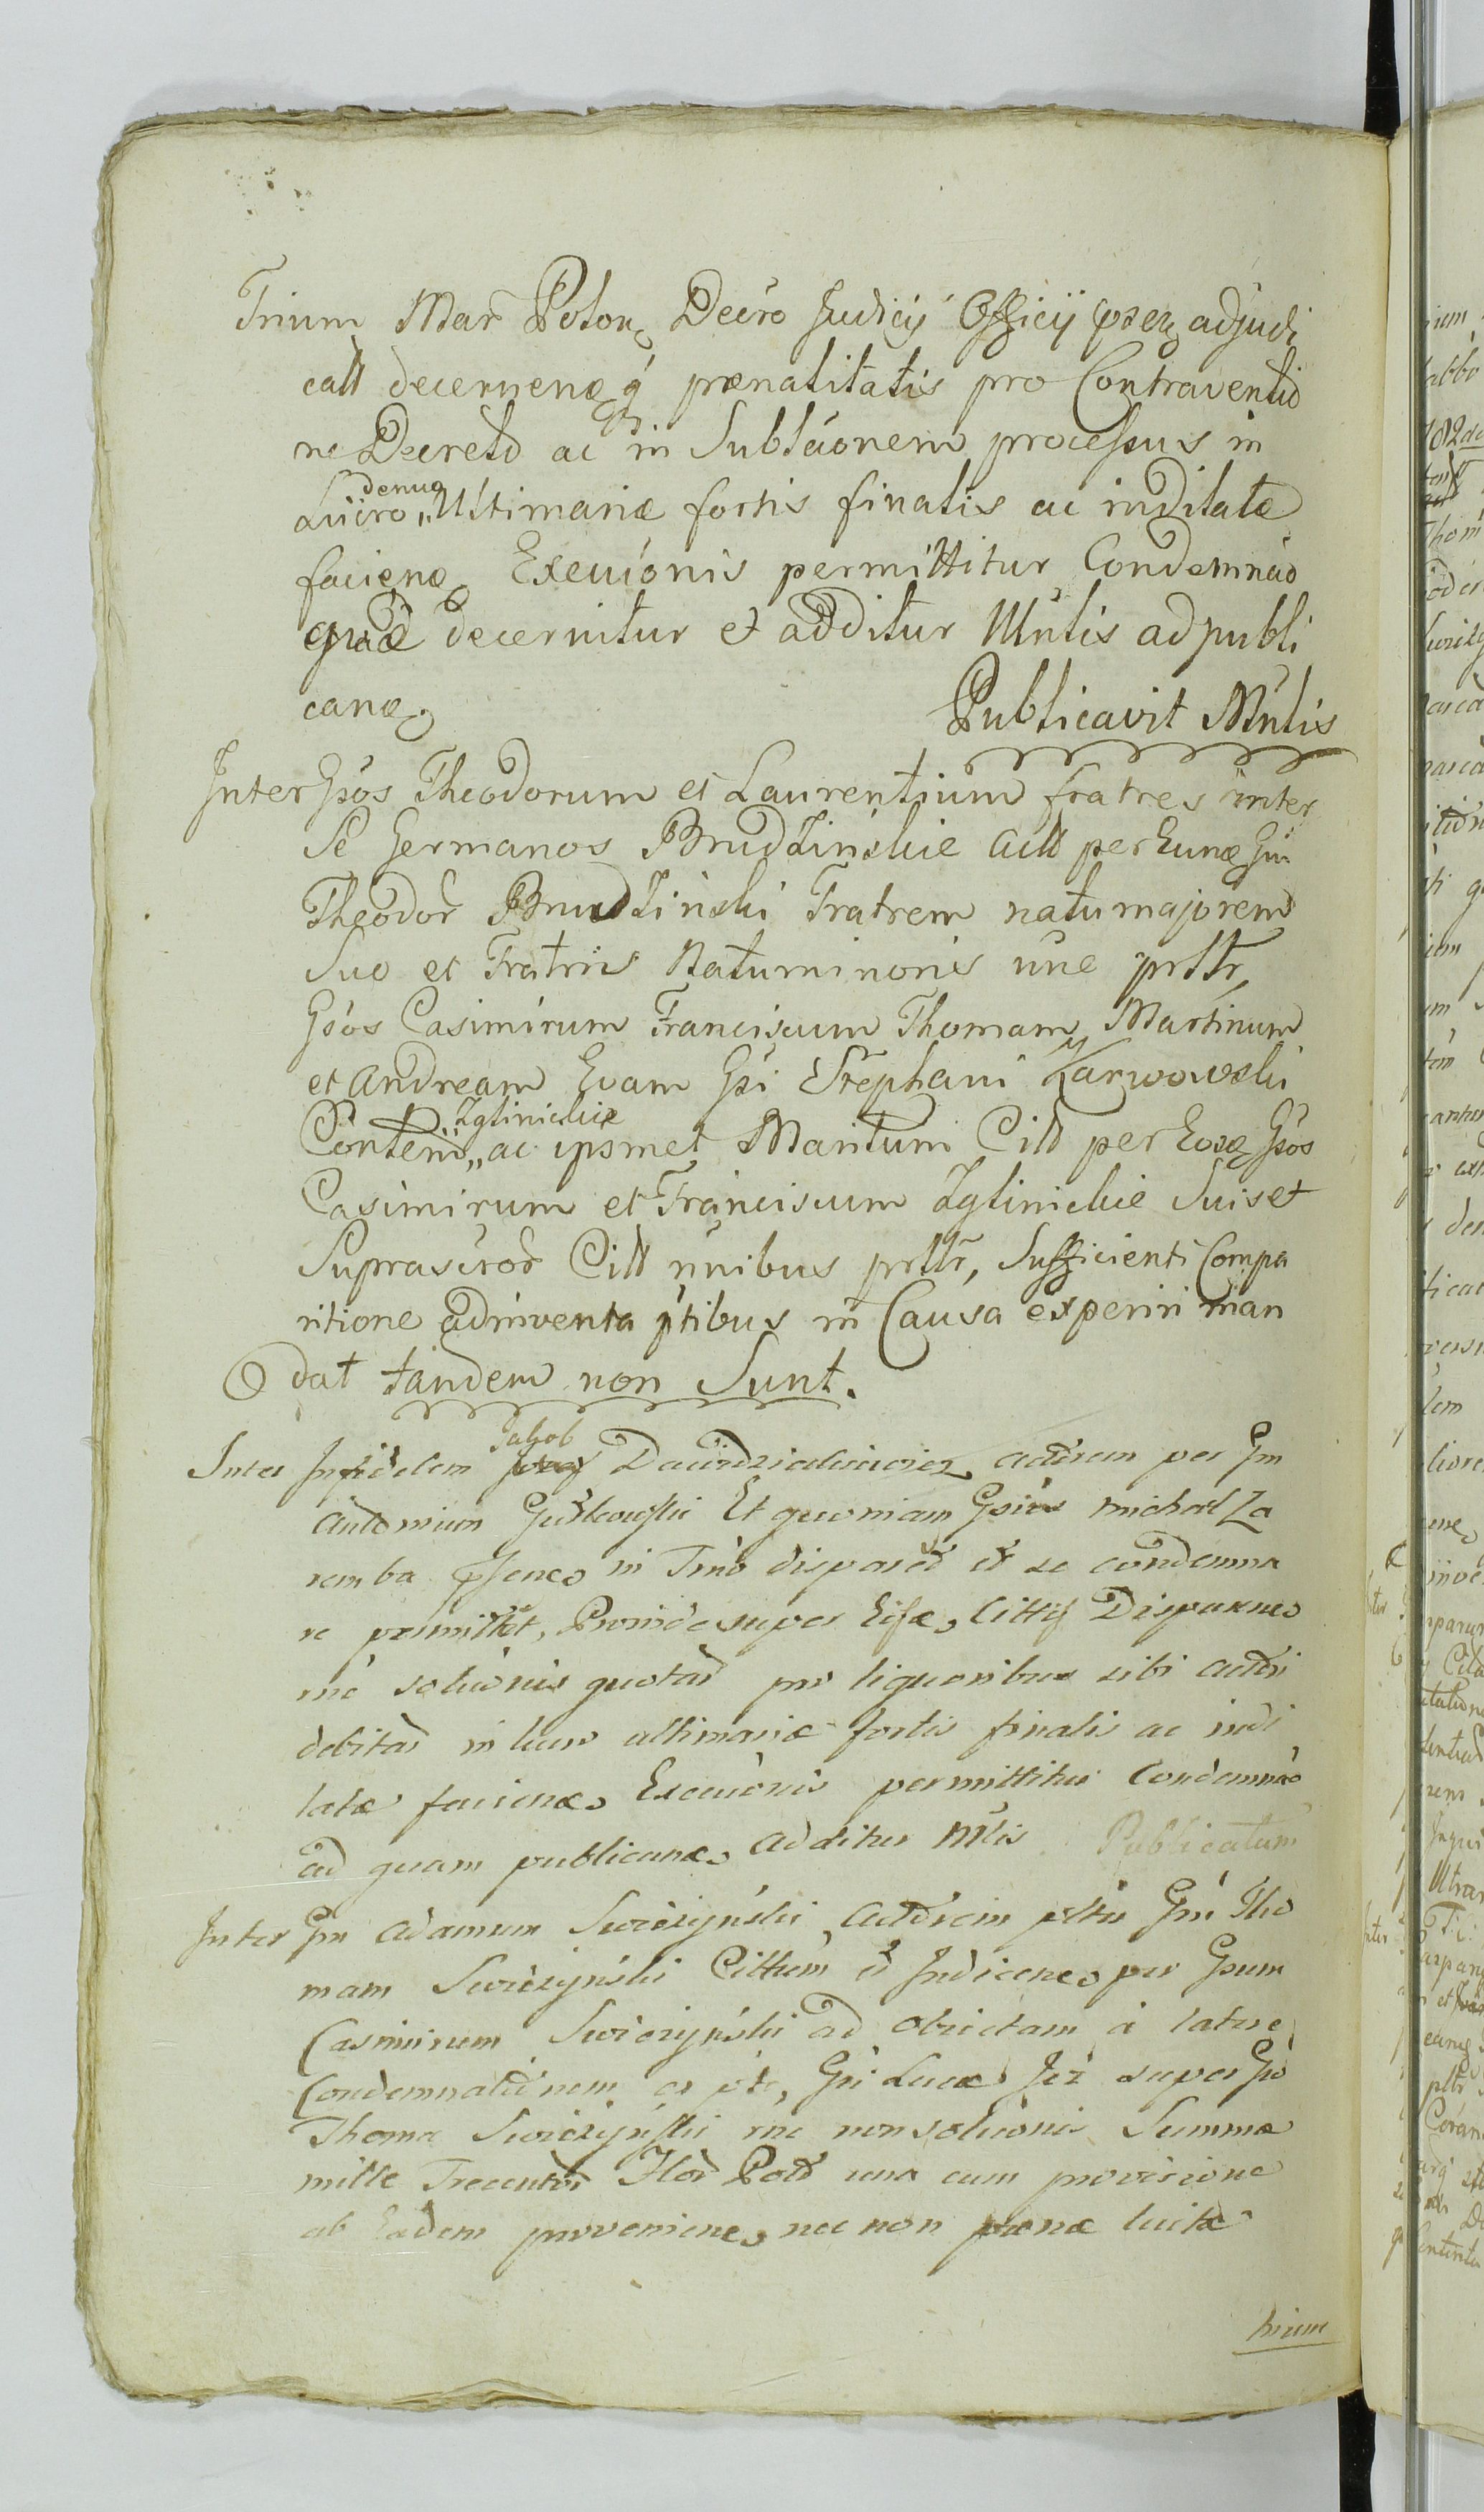 Trium Mar Polon Decro Judicij Officij psen adjudi
catt decernenæ q pœnalitatis pro Contraventio
ne Decreto ac in Sublāonem processus in
denuo
Lucro „ Ultimariæ fortis finalis ac inditatæ
facienæ Execuionis permittitur Condemnāo
quæ decernitur et additur Mntis ad publi
canæ
Publicavit Mntis
Inter Gsos Theodorum et Laurentium fratres inter
Se Germanos Brudziński Actt per Eunæ Gn
Theodor Brudziński Fratrem natu majorem
Suo et Fratris Natu minoris nne prttr,
Gsos Casimirum Franciscum Thomam Martinum
et Andream Evam Gsi Stephani Karwowski
Zglinickie
Contem „ ac ipsmet Maritum Citt per Eosæ Gsos
Casimirum et Franciscum Zglinickie Suis et
Suprascror Citt nnibus prttr, Sufficienti Compa
ritione adinventa ptibus in Causa experiri man
dat tandem non Sunt.
Jakob
Inter Infidelem Dawidzialowicz actorem per Gn
Antonium Et quoniam Gsus Michael Za
remba psenæ in Tino disparet et se condemna
re permittet, Proinde super Eisæ, Cittis Disparnes
rne soluonis quotad pro liquoribus sibi actori
debitad in lucro ultimariæ fortis finalis ac indi
latæ facienæ Execuionis permittitur Condemnāo
ad quam publicanæ additur Mtis Publicatum
Inter Gn Adamum Swierzyński Actorem pttr Gn Tho
mam Swierzyński Cittum et Indicenæ per Gsum
Casimirum Swierzyński ad obiectam a latere
Condemnationem ex pte, Gsi Lucæ Jez super Gso
Thoma Swierzyński rne non soluonis Summæ
mille Trecentor Flor Pold una cum provisione
ab Eadem provenienæ, nec non pœnæ luitæ
hium